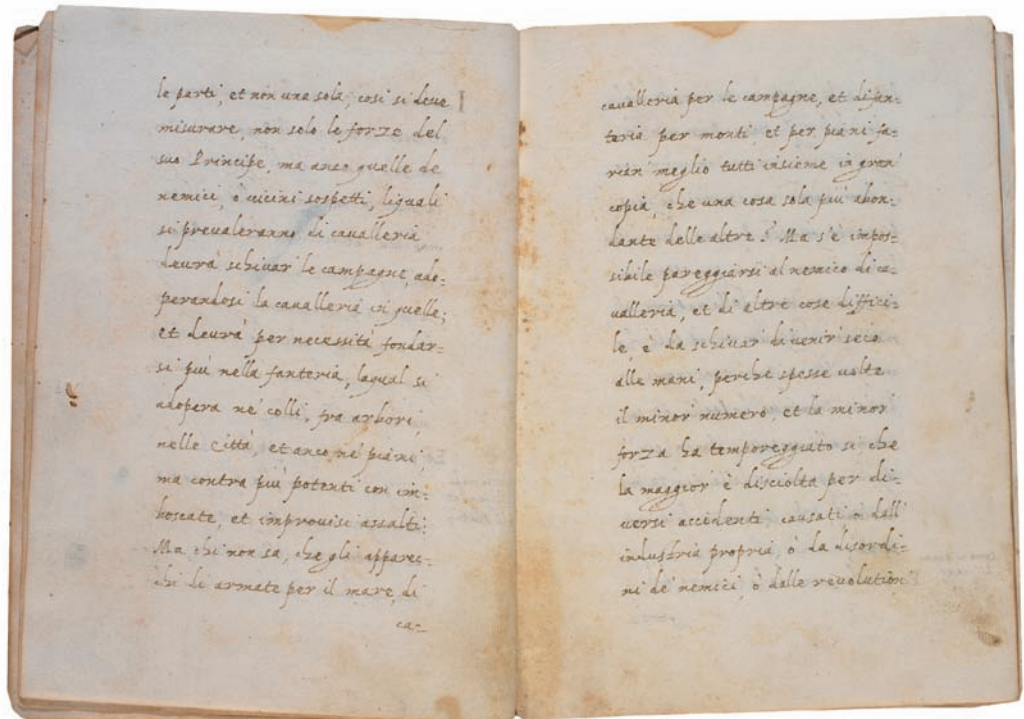 le parti, et non una sola, cosi si deve
misurare, non solo le forze del
suo Principe, ma anco quelle de
nemici, ò vicini sospetti, liquali
si prevaleranno di cavalleria
devrà schivar le campagne, ado-
perandosi la cavalleria in quelle;
et devrà per necessità fondar-
si più nella fanteria, laqual si
adopera ne' colli, fra arbori,
nelle Città, et anco ne' piani,
ma contra più potenti con im-
boscate, et improvisi assalti:
Ma chi non sa, che gli apparec-
chi di armate per il mare, di
ca-
cavalleria per le campagne, et di fan-
teria per monti, et per piani fa-
rian meglio tutti insieme in gran
copia, che una cosa sola più abon-
dante delle altre? Ma s'è impos-
sibile pareggiarsi al nemico di ca-
valleria, et di altre cose diffici-
le, è da schivar di venir seco
alle mani, perche spesse volte
il minor numero, et la minor
forza ha temporeggiato si che
la maggior è disciolta per di-
versi accidenti causati ò dall'
industria propria, ò da disordi-
ni de' nemici, ò dalle revolution